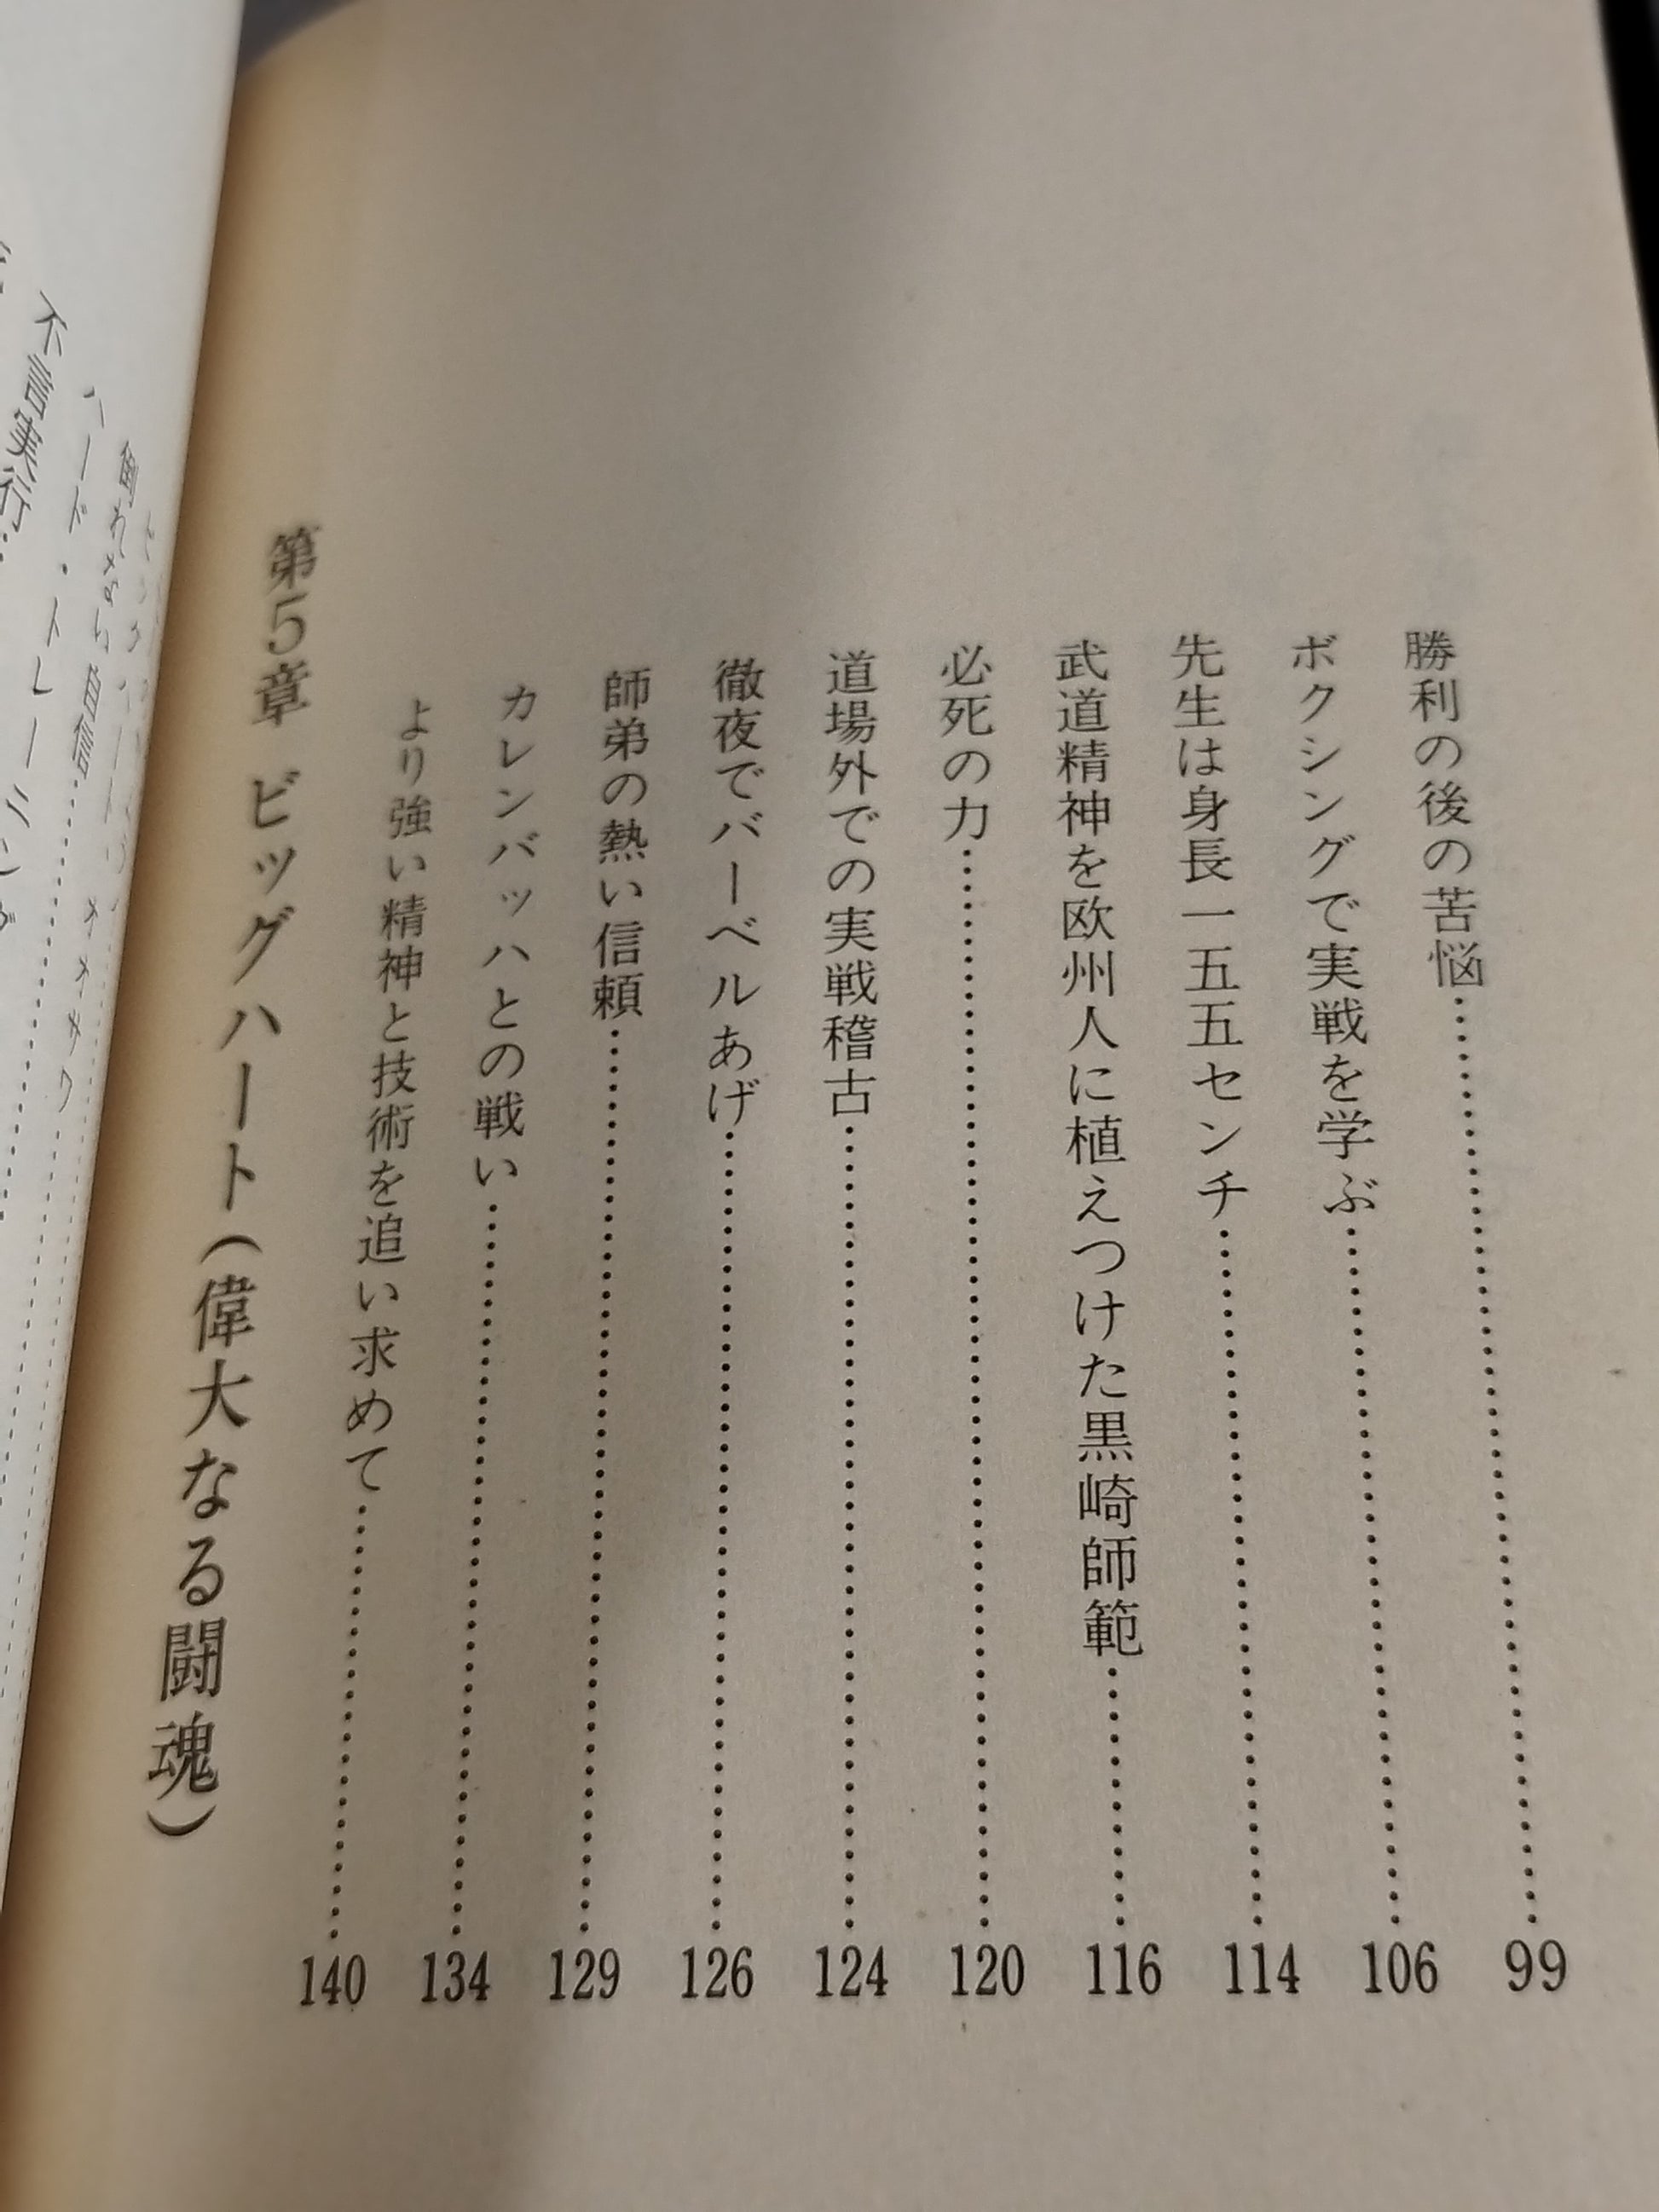 勝利の後の苦悩……………99
ボクシングで実戦を学ぶ……………106
先生は身長一五五センチ……………114
武道精神を欧州人に植えつけた黒崎師範……………116
必死の力……………120
道場外での実戦稽古……………124
徹夜でバーベルあげ……………126
師弟の熱い信頼……………129
カレンバッハとの戦い……………134
より強い精神と技術を追い求めて……………140
第5章 ビッグハート(偉大なる闘魂)
倒れない自信……………
ハード・トレーニング
不言実行……………